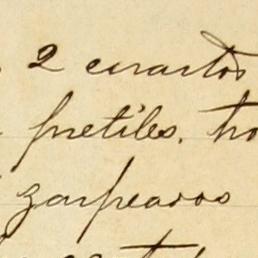 2 cuartos
pretiles. tro
zarpeados